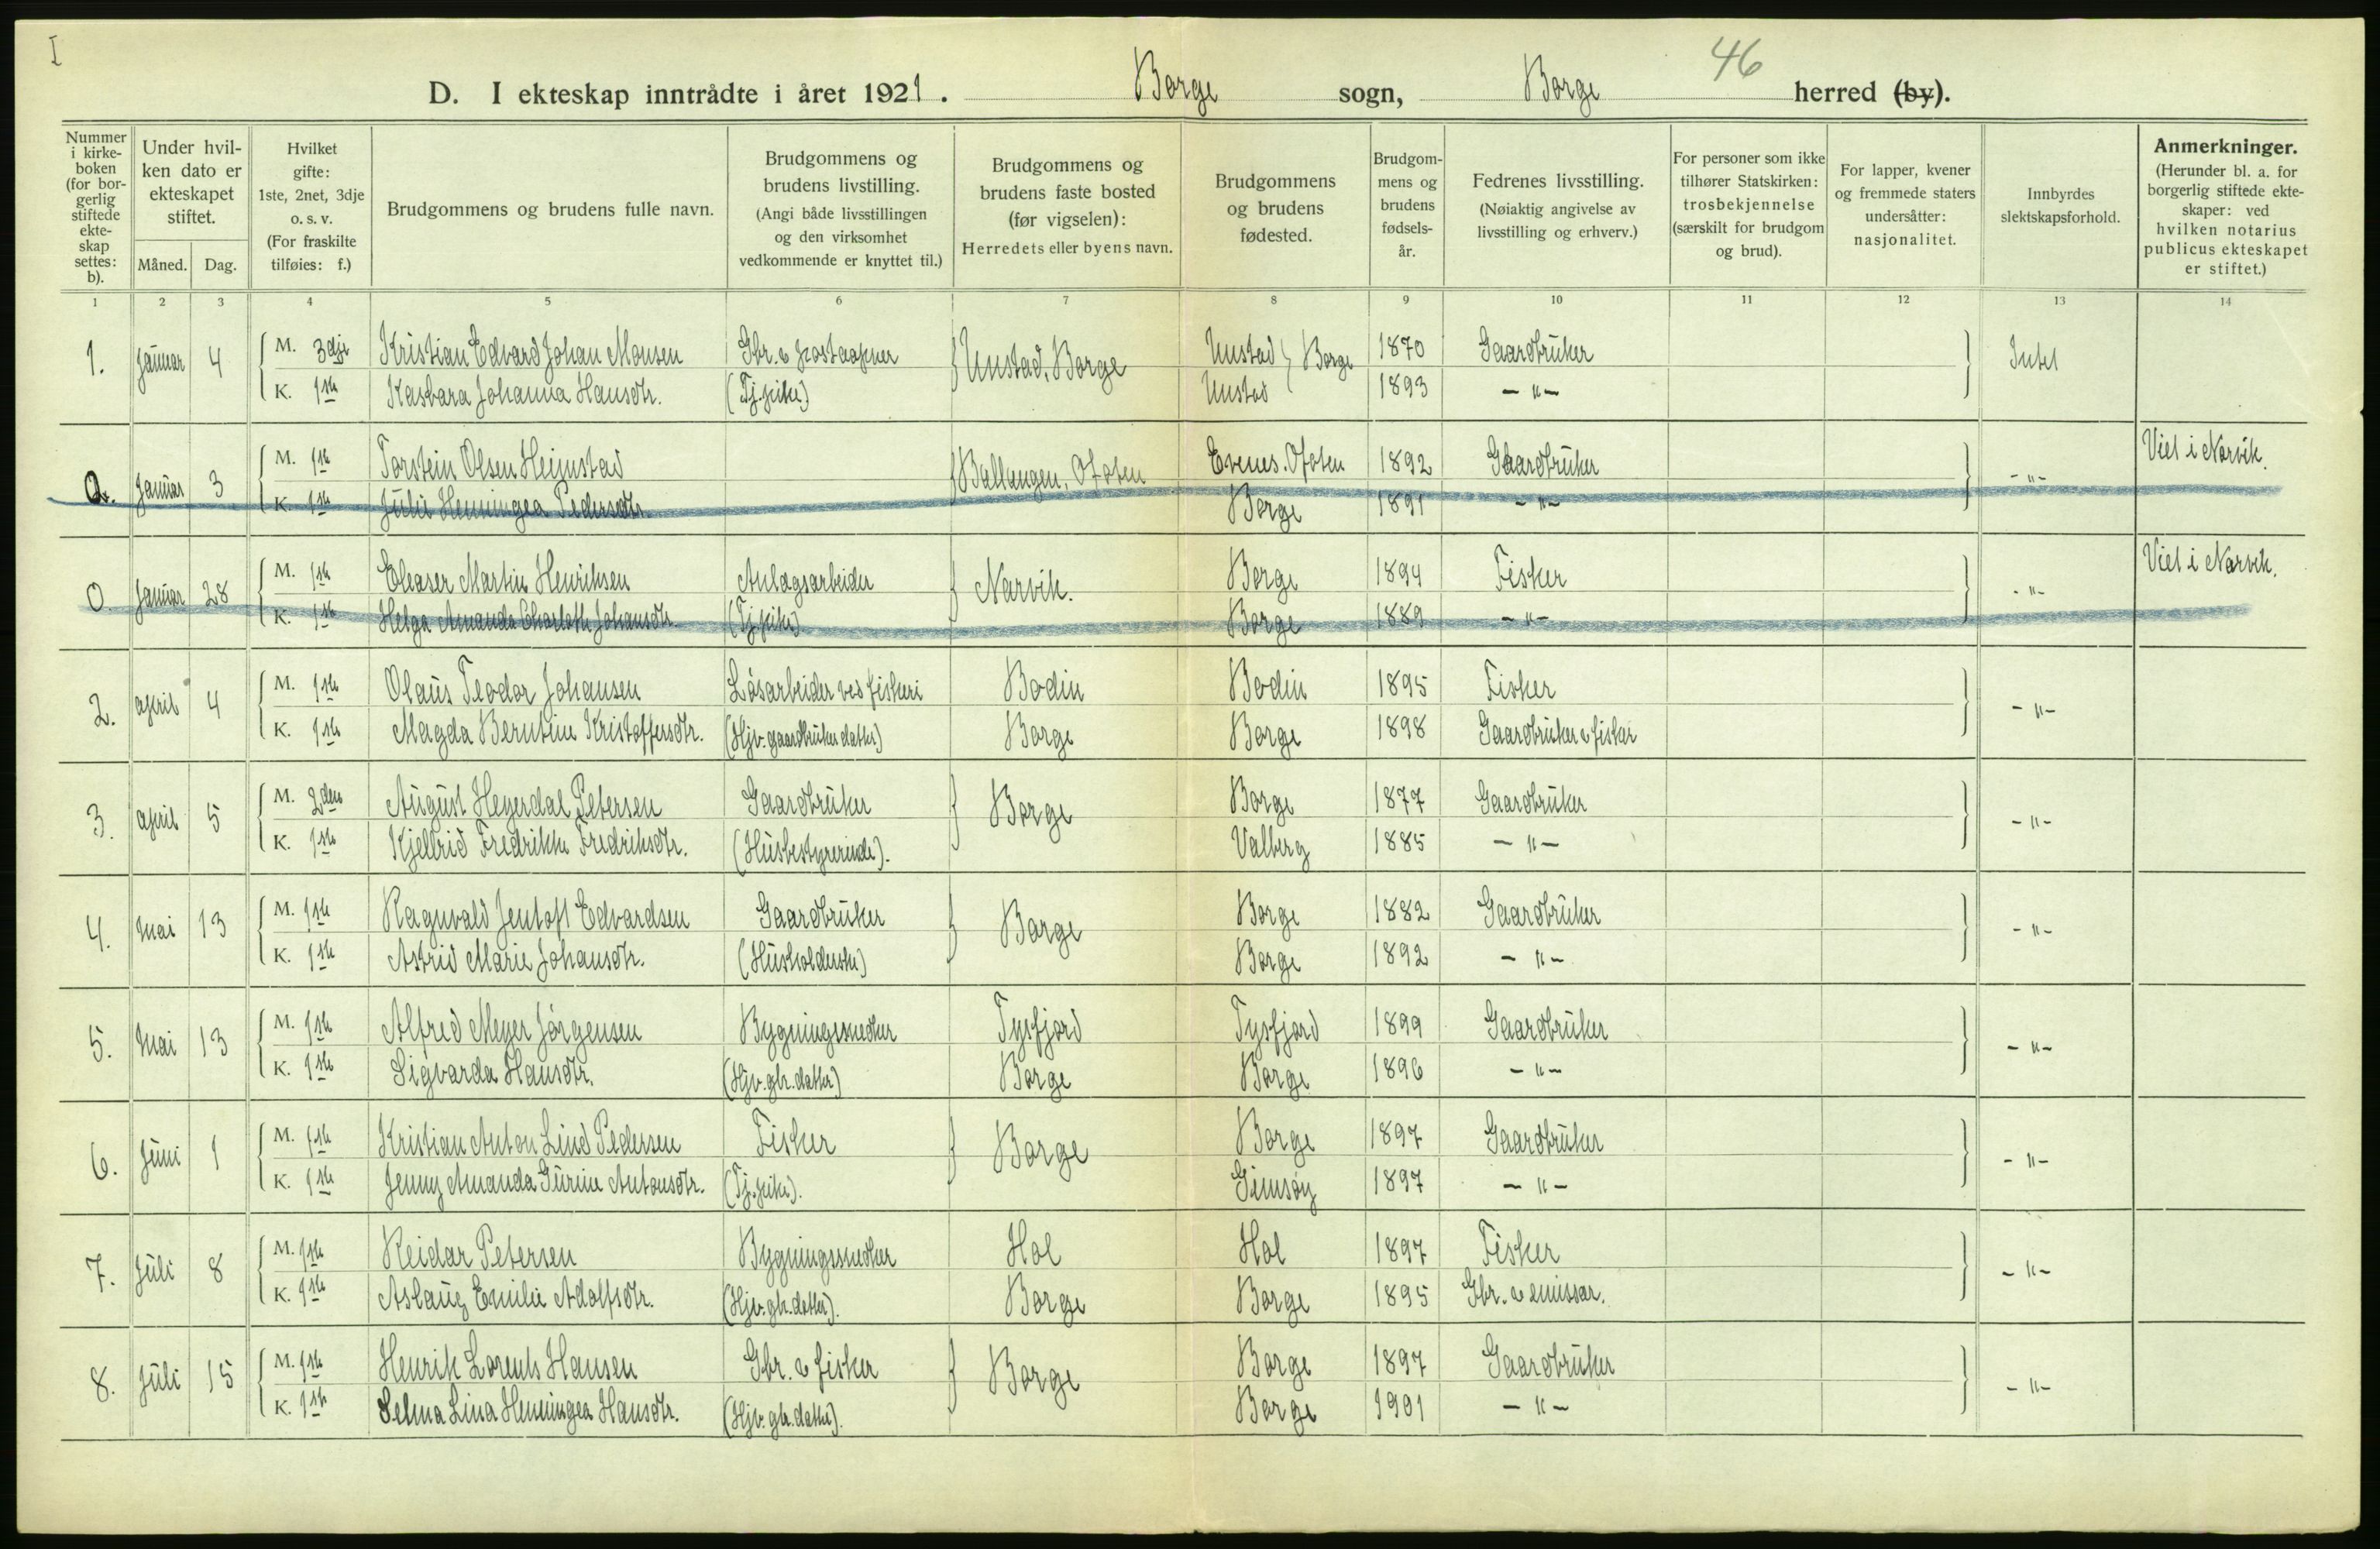 I
46
D. I ekteskap inntrådte i året 1921. Borge sogn, Borge herred (by).
Nummer i kirke-boken (for bor-gerlig stiftede ekte-skap settes: b).
Under hvil-ken dato er ekteskapet stiftet.
Måned. Dag.
Hvilket gifte: 1ste, 2net, 3dje o. s. v. (For fraskilte tilføies: f.)
Brudgommens og brudens fulle navn.
Brudgommens og brudens livstilling. (Angi både livsstillingen og den virksomhet vedkommende er knyttet til.)
Brudgommens og brudens faste bosted (før vigselen): Herredets eller byens navn.
Brudgommens og brudens fødested.
Brudgom-mens og brudens fødsels-år.
Fedrenes livsstilling. (Nøiaktig angivelse av livsstilling og erhverv.)
For personer som ikke tilhører Statskirken: trosbekjennelse (særskilt for brudgom og brud).
For lapper, kvener og fremmede staters undersåtter: nasjonalitet.
Innbyrdes slektskapsforhold.
Anmerkninger. (Herunder bl. a. for borgerlig stiftede ekte-skaper: ved hvilken notarius publicus ekteskapet er stiftet.)
1 2 3 4 5 6 7 8 9 10 11 12 13 14
1. Januar 4 M. 3dje Kristian Edvard Johan Monsen Gbr. & postaapner Unstad, Borge Unstad Borge 1870 Gaardbruker Intet
K. 1ste Kasbara Johanna Hansdtr. (Tj.pike) Unstad 1893 -"-
0. Januar 3 M. 1ste Torstein Olsen Heimstad Ballangen, Ofoten Evenes. Ofoten 1892 Gaardbruker -"- Viet i Narvik.
K. 1ste Julie Henningea Pedersdtr. Borge 1891 -"-
0 Januar 28 M. 1ste Eleaser Martin Henriksen Anlægsarbeider Narvik. Borge 1894 Fisker -"- Viet i Narvik.
K. 1ste Helga Amanda Charlotte Johansdtr. (Tj.pike) Borge 1889 -"-
2. April 4 M. 1ste Olaus Teodor Johansen Løsarbeider ved fiskeri Bodin Bodin 1895 Fisker -"-
K. 1ste Magda Berntine Kristoffersdtr. (Hjv. gaardbruker datter) Borge Borge 1898 Gaardbruker & fisker
3. April 5 M. 2den August Heyerdal Petersen Gaardbruker Borge Borge 1877 Gaardbruker -"-
K. 1ste Kjellrid Fredrikke Fredriksdtr. (Husbestyrerinde). Valberg 1885 -"-
4. Mai 13 M. 1ste Ragnvald Jentoft Edvardsen Gaardbruker Borge Borge 1882 Gaardbruker -"-
K. 1ste Astrid Marie Johansdtr. (Husholderske) Borge 1892 -"-
5. Mai 13 M. 1ste Alfred Meyer Jørgensen Bygningssnedker Tysfjord Tysfjord 1899 Gaardbruker -"-
K. 1ste Sigvarda Hansdtr. (Hjv. gbr. datter) Borge Borge 1896 -"-
6. Juni 1 M. 1ste Kristian Anton Lind Pedersen Fisker Borge Borge 1897 Gaardbruker -"-
K. 1ste Jenny Amanda Gurine Antonsdtr. (Tj.pike). Gimsøy 1897 -"-
7. Juli 8 M. 1ste Reidar Petersen Bygningssnedker Hol Hol 1897 Fisker -"-
K. 1ste Aslaug Emilie Adolfsdtr. (Hjv. gbr. datter). Borge Borge 1895 Gbr. & emissær.
8. Juli 15 M. 1ste Henrik Lorents Hansen Gbr. & fisker Borge Borge 1897 Gaardbruker -"-
K. 1ste Selma Lina Henningea Hansdtr. (Hjv. gbr. datter). Borge 1901 -"-